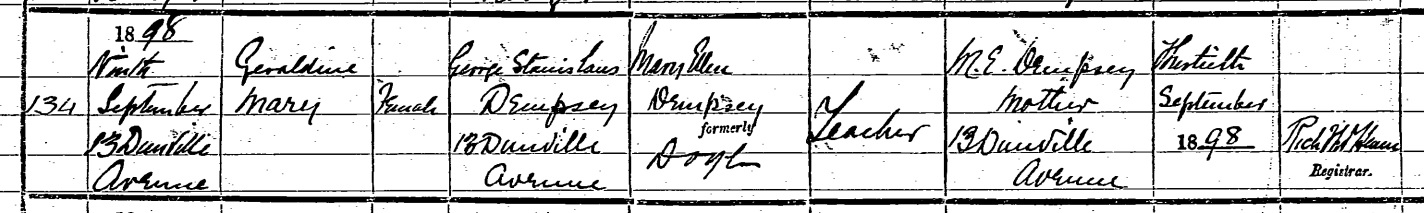 134
1898
Ninth
September
13 Dunville
Avenue
Geraldine
Mary
Female
George Stanislaus
Dempsey
13 Dunville
Avenue
Mary Ellen
Dempsey
formerly
Doyle
Teacher
M.E. Dempsey
Mother
13 Dunville
Avenue
Thirtieth
September
1898
Registrar.